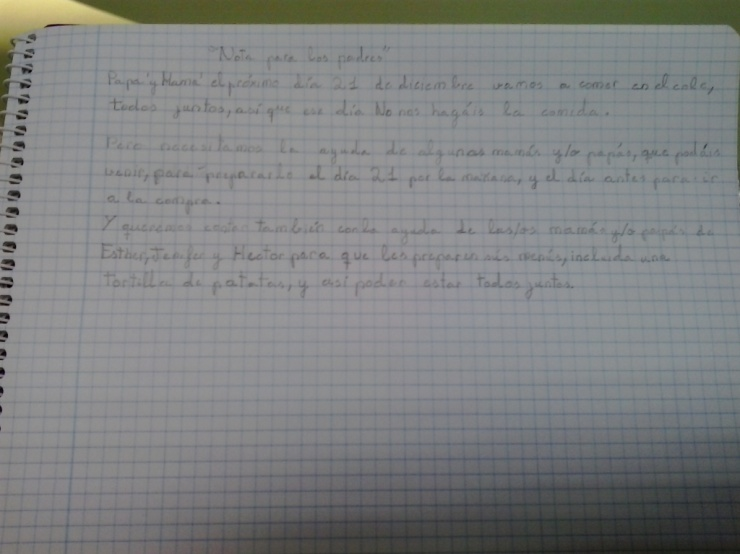 "Nota para los padres"
Papá y Mamá el próximo día 21 de diciembre vamos a comer en el cole,
todos juntos, así que ese día No nos hagáis la comida.
Pero necesitamos la ayuda de algunas mamás y/o papás, que podáis
venir, para prepararlo el día 21 por la mañana, y el día antes para ir
a la compra.
Y queremos contar también con la ayuda de las/os mamás y/o papás de
Esther, Jenifer y Hector para que les preparen sus menús, incluida una
tortilla de patatas, y así poder estar todos juntos.